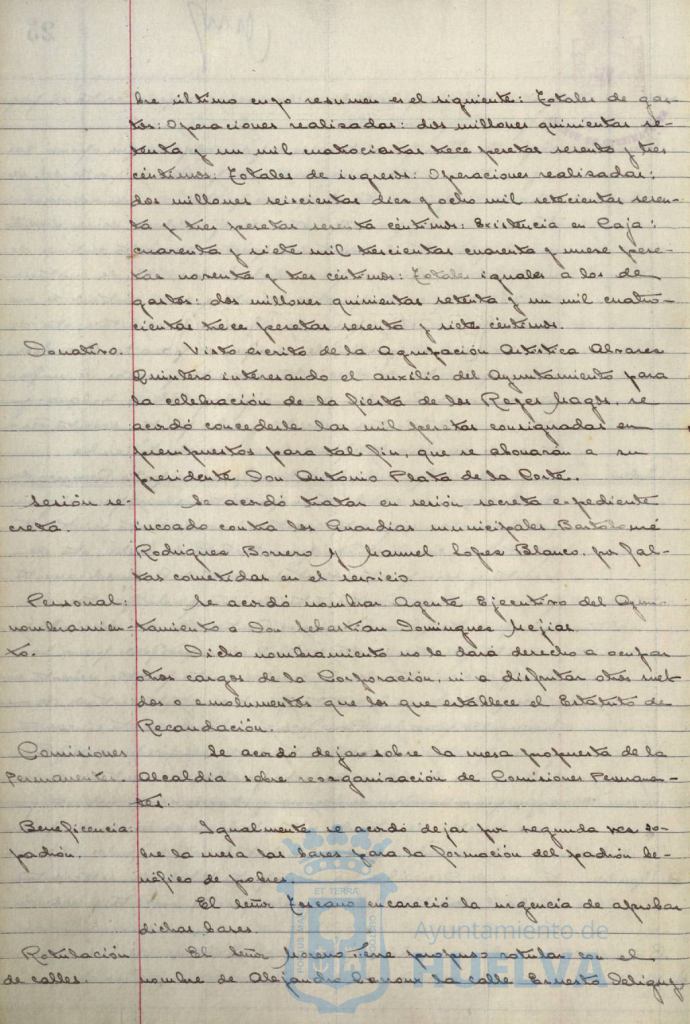 bre último cuyo resumen es el siguiente: Totales de gas-
tos: Operaciones realizadas: dos millones quinientas se-
tenta y un mil cuatrocientas trece pesetas sesenta y tres
céntimos: Totales de ingresos: Operaciones realizadas:
dos millones seiscientas diez y ocho mil setecientas sesen-
ta y tres pesetas sesenta céntimos: Existencia en Caja:
cuarenta y siete mil trescientas cuarenta y nueve pese-
tas noventa y tres céntimos: Totales iguales a los de
gastos: dos millones quinientas setenta y un mil cuatro-
cientas trece pesetas sesenta y siete céntimos.
Donativo. Visto escrito de la Agrupación Artística Alvarez
Quintero interesando el auxilio del Ayuntamiento para
la celebración de la fiesta de los Reyes Magos, se
acordó concederle las mil pesetas consignadas en
presupuestos para tal fin, que se abonarán a su
presidente Don Antonio Plata de la Corte.
Sesión se- Se acordó tratar en sesión secreta expediente
creta. incoado contra los Guardias municipales Bartolomé
Rodriguez Borrero y Manuel Lopez Blanco, por fal-
tas cometidas en el servicio.
Personal: Se acordó nombrar Agente Ejecutivo del Ayun-
nombramien- tamiento a Don Sebastian Dominguez Mejias.
to. Dicho nombramiento no le dará derecho a ocupar
otros cargos de la Corporación, ni a disfrutar otros suel-
dos o emolumentos que los que establece el Estatuto de
Recaudación.
Comisiones Se acordó dejar sobre la mesa propuesta de la
Permanentes. Alcaldía sobre reorganización de Comisiones Permanen-
tes.
Beneficencia: Igualmente se acordó dejar por segunda vez so-
padrón. bre la mesa las bases para la formación del padrón be-
néfico de pobres.
El Señor Toscano encareció la urgencia de aprobar
dichas bases.
Rotulación El Señor Moreno propuso rotular con el
de calles. nombre de Alejandro la calle Ernesto Deligny
ET TERRA
Ayuntamiento de
HUELVA